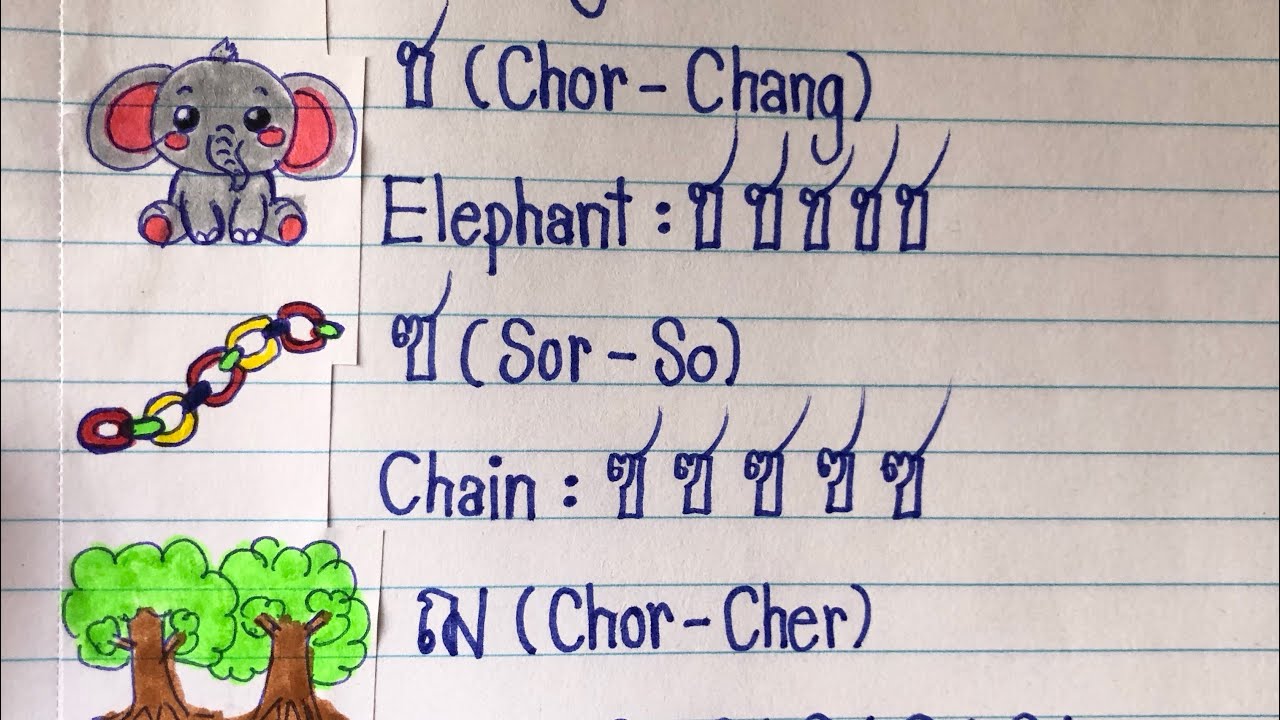 ช (Chor - Chang)
Elephant : ช ช ช ช ช
ซ (Sor - So)
Chain : ซ ซ ซ ซ ซ
ฌ (Chor - Cher)